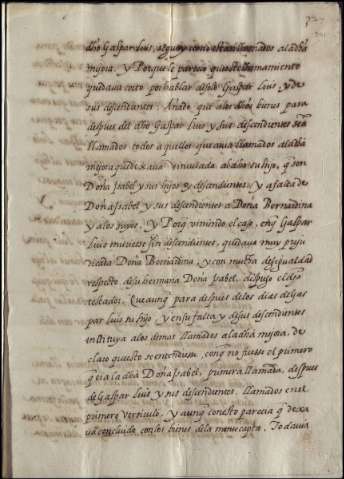 dho Gaspar luis, a quien como estan llamados a la dha
mejora. Y Porque le parecio que este llamamiento
quedava corto por hablar del dho Gaspar luis, y de
sus descendientes. Añado que a los dhos bienes para
despues del dho Gaspar luis y sus descendientes sean
llamados todos aquellos que avia llamados a la dha
mejora que dexava vinculada a la dha su hijo, q son
Doña ysabel y sus hijos y descendientes, y a falta de
Doña ysabel y sus descendientes a Doña Bernardina
y a los suyos. Y Porq viniendo el caso, en q Gaspar
luis muriesse sin descendientes, quedava muy preju
dicada Doña Bernardina, y con mucha desigualdad
respecto de su hermana Doña ysabel. dispuso el dho
testador. Que aunq para despues de los dias de Gas
par luis su hijo y en su falta y de sus descendientes
instituya a los demas llamados a la dha mejora, de
claro questo se entendiesse, con q no fuesse el primero
q la dha Doña ysabel, primera llamada, despues
de Gaspar luis y sus descendientes. llamados en el
primero vertículo, y aunq con esto parecia q dexa
va concluido con los bienes de la manecapta. Todavia